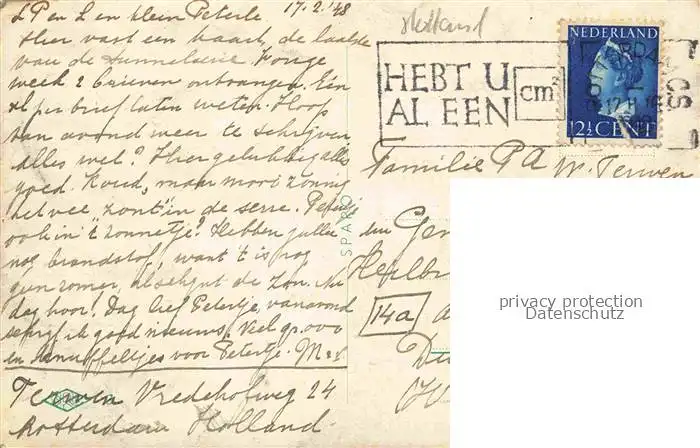 LP en L en klein Peterle 17.2.'48
Hier vast een kaart, de laatste
van de Vorige
week 2 brieven ontvangen. Eén
per brief laten weten. Hoop
van avond weer te schrijven
alles wel? Hier gelukkig alles
goed. Koud, maar mooi zonnig
het vee "zont" in de serre. Petertje
ook in 't zonnetje? Hebben jullie
nog brandstof, want 't is nog
geen zomer, al schijnt de zon. Nu
dag hoor! Dag lief Petertje, vanavond
schrijf ik goed nieuws. Veel gr. 000
en snuffeltjes voor Petertje. M
Terwen Vredehofweg 24
Rotterdam Holland.
SPARO
Holland
HEBT U
AL EEN
cm²
NEDERLAND
12½ CENT
ROTTERDAM
CS
17 II
Familie P A W. Terwen
Heilbr
14a
privacy protection
Datenschutz